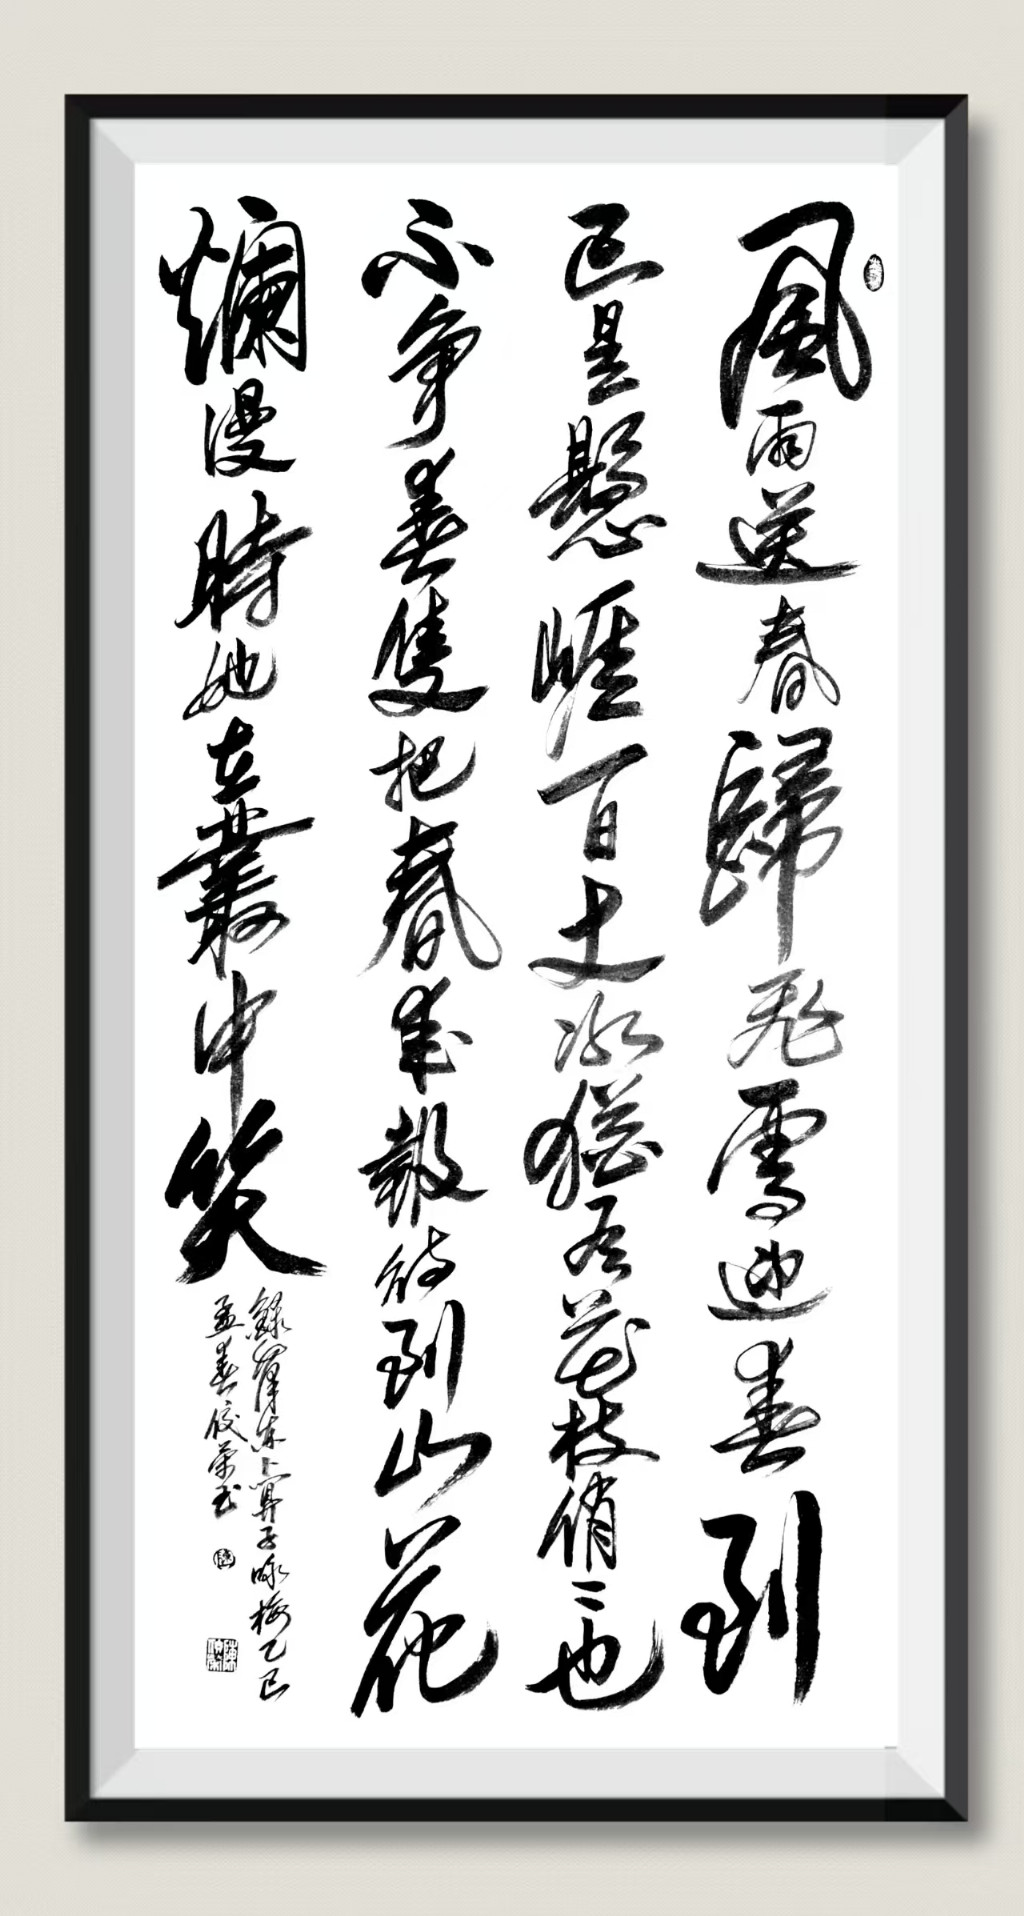 風雨送春歸飛雪迎春到
已是懸崖百丈冰猶有花枝俏〻也
不争春隻把春来報待到山花
爛漫時她在叢中笑
錄澤东卜算子咏梅乙巳
孟春俊荣书